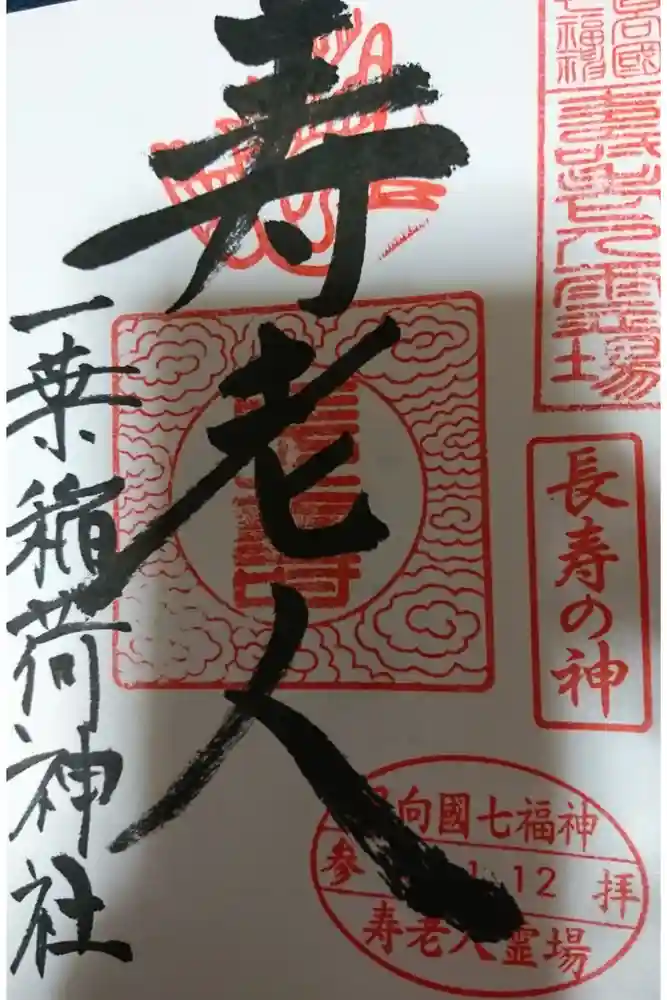 七福神
壽老人霊場
長寿の神
寿老人
一葉稲荷神社
向國七福神
参 1.12 拝
寿老人霊場